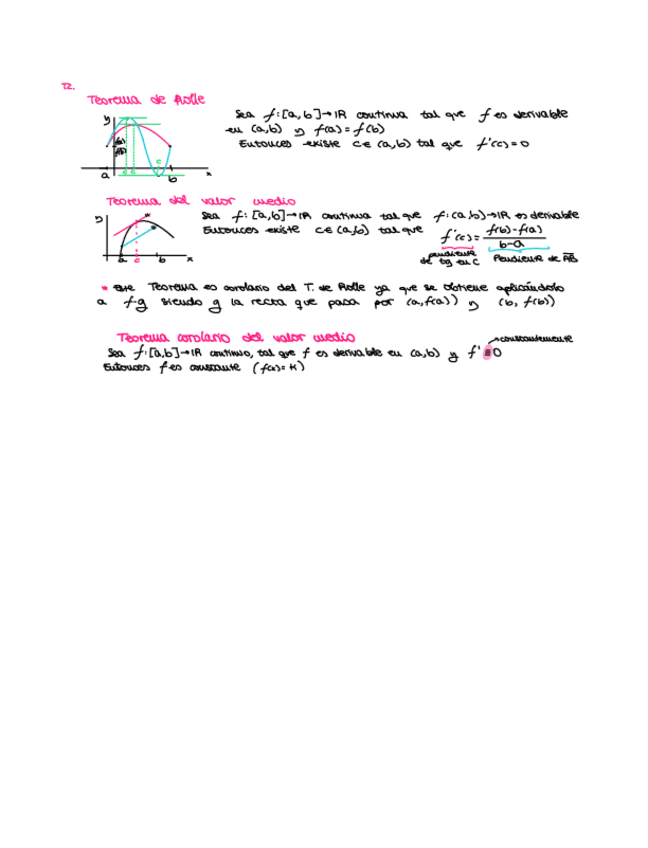 T2.
Teorema de Rolle
y
a
c
c
c
b
x
Sea f:[a,b]→ℝ continua tal que f es derivable
en (a,b) y f(a)=f(b)
Entonces existe c∈(a,b) tal que f'(c)=0
Teorema del valor medio
y
a
c
b
x
Sea f:[a,b]→ℝ continua tal que f:(a,b)→ℝ es derivable
Entonces existe c∈(a,b) tal que f'(c)= f(b)-f(a) / b-a
pendiente de tg en c
Pendiente de AB
* Este Teorema es corolario del T. de Rolle ya que se obtiene aplicándolo
a f-g siendo g la recta que pasa por (a,f(a)) y (b,f(b))
Teorema corolario del valor medio
constantemente
Sea f:[a,b]→ℝ continua, tal que f es derivable en (a,b) y f'≡0
Entonces f es constante (f(x)=K)